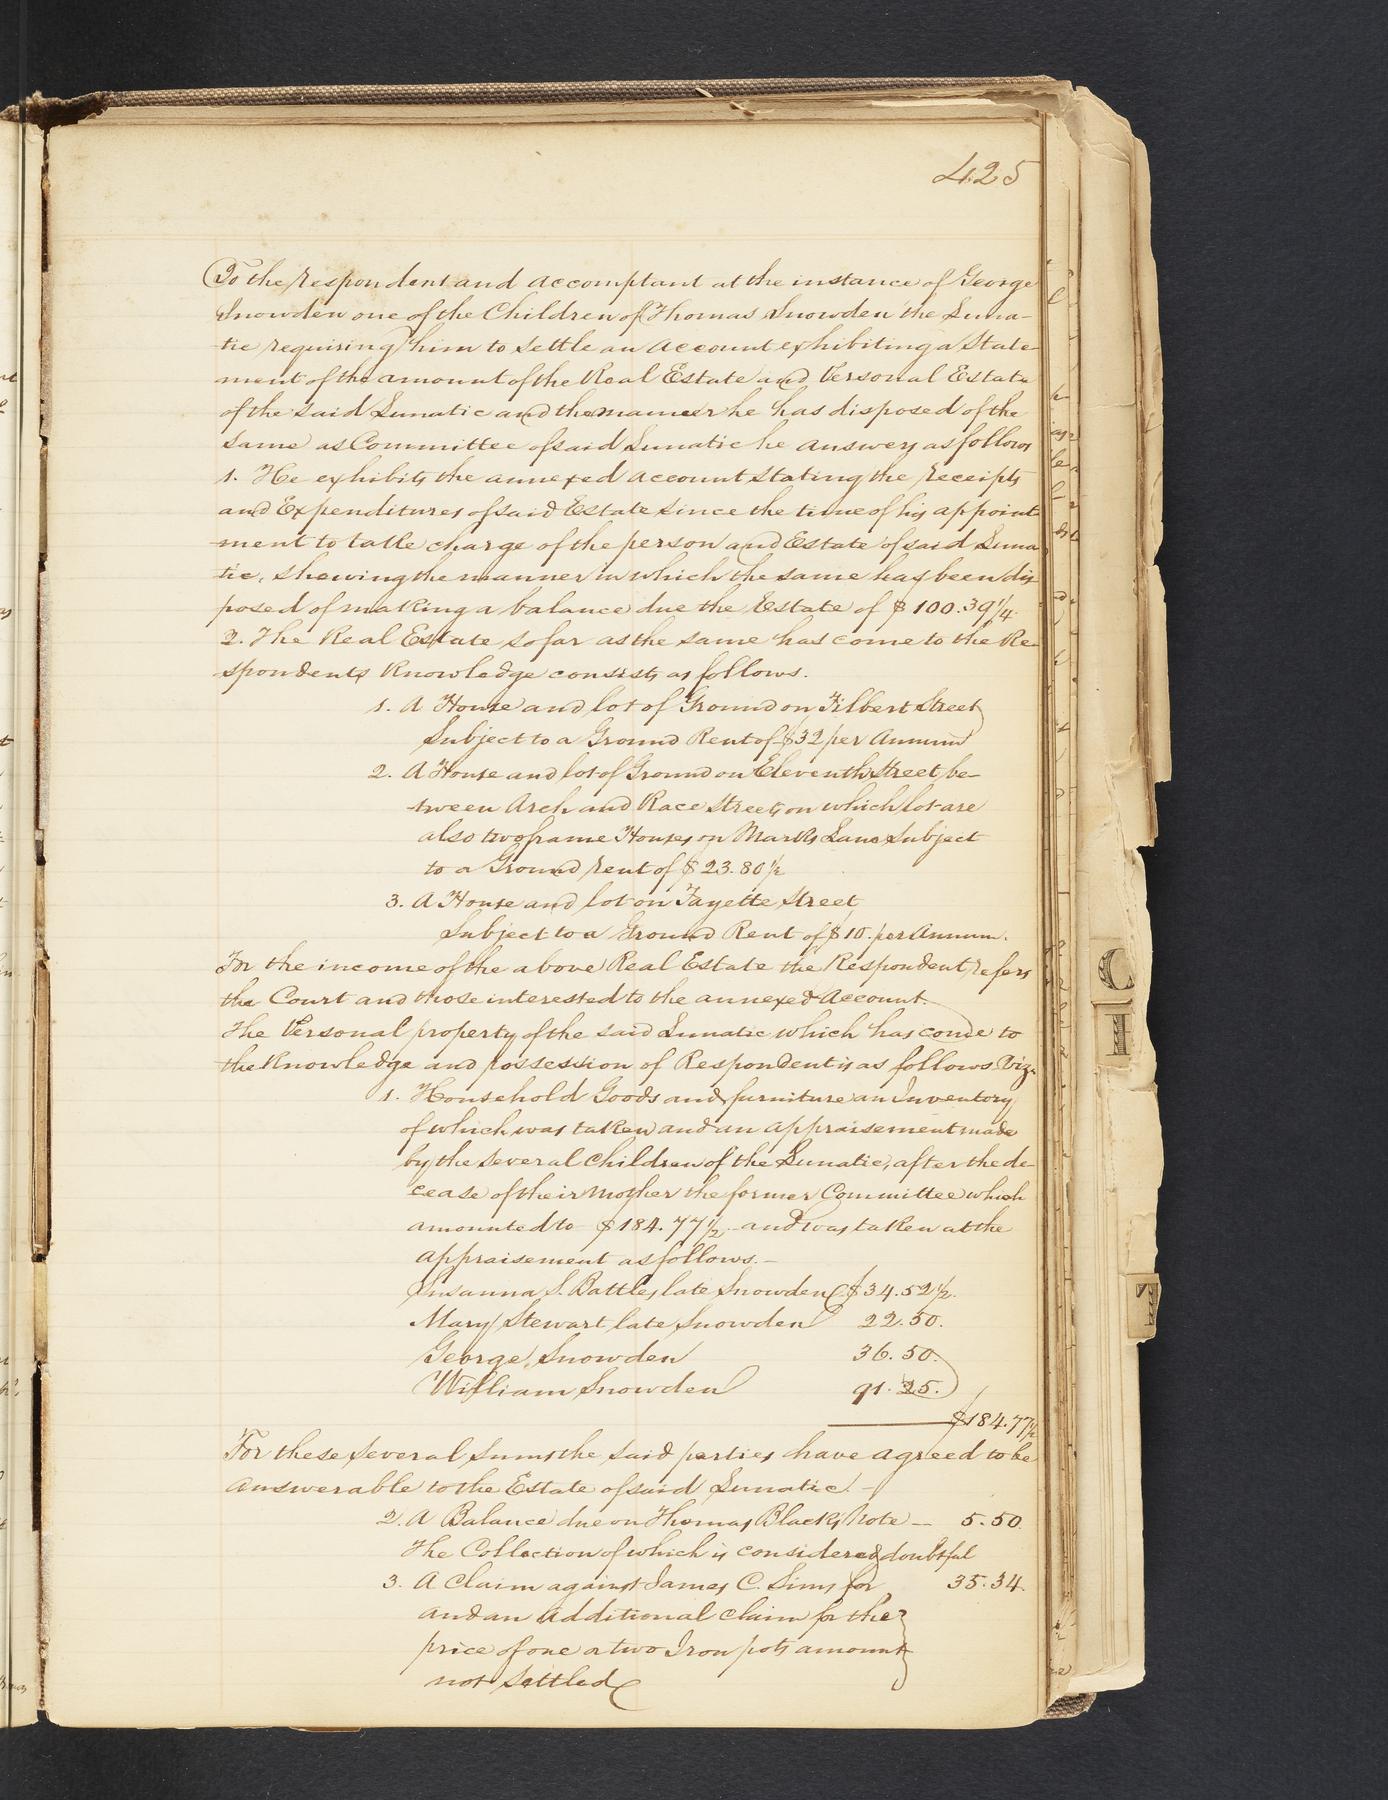 425
To the respondent and accomptant at the instance of George
Snowden one of the Children of Thomas Snowden the Luna-
tic requiring him to settle an account exhibiting a State-
ment of the amount of the Real Estate and Personal Estate
of the said Lunatic and the manner he has disposed of the
same as Committee of said Lunatic he answers as follows
1. He exhibits the annexed account stating the receipts
and Expenditures of said Estate since the time of his appoint
ment to take charge of the person and Estate of said Luna
tic, shewing the manner in which the same has been dis
posed of making a balance due the Estate of $100.39¼
2. The Real Estate so far as the same has come to the Re-
spondents Knowledge consists as follows.
1. A House and lot of Ground on Filbert Street
Subject to a Ground Rent of $32 per Annum
2. A House and lot of Ground on Eleventh Street be-
tween Arch and Race Streets on which lot are
also two frame Houses on Marks Lane Subject
to a Ground rent of $23.80½
3. A House and lot on Fayette Street
Subject to a Ground Rent of $10. per Annum.
For the income of the above Real Estate the Respondent refers
the Court and those interested to the annexed Account.
The Personal property of the said Lunatic which has come to
the Knowledge and possession of Respondent is as follows Viz.
1. Household Goods and furniture an Inventory
of which was taken and an appraisement made
by the several Children of the Lunatic, after the de-
cease of their Mother the former Committee which
amounted to $184.77½ and was taken at the
appraisement as follows.-
Susanna S. Battles late Snowden $34.52½.
Mary Stewart late Snowden 22.50.
George Snowden 36.50.
William Snowden 91.25.
$184.77½
For these several sums the said parties have agreed to be
answerable to the Estate of said Lunatic. -
2. A Balance due on Thomas Blacks Note — 5.50
The Collection of which is considered doubtful
3. A Claim against James C. Sims for 35.34
and an additional claim for the
price of one or two Iron pots amount
not settled
C
I
T